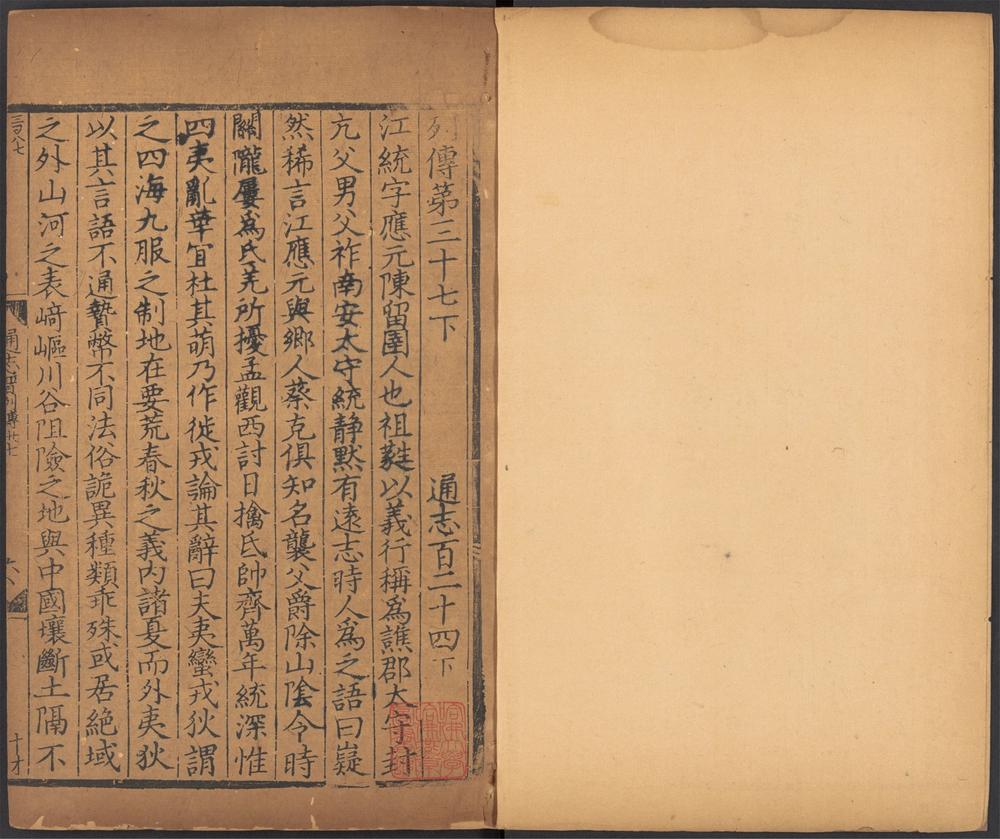 列傳第三十七下 通志百二十四下
江統字應元陳留圉人也祖蕤以義行稱爲譙郡太守封
亢父男父祚南安太守統静默有遠志時人爲之語曰嶷
然稀言江應元與鄉人蔡克俱知名襲父爵除山陰令時
關隴屢爲氐羌所擾孟觀西討日擒氐帥齊萬年統深惟
四夷亂華宜杜其萌乃作徙戎論其辭曰夫夷蠻戎狄謂
之四海九服之制地在要荒春秋之義内諸夏而外夷狄
以其言語不通贄幣不同法俗詭異種類乖殊或居絶域
之外山河之表崎嶇川谷阻險之地與中國壤斷土隔不
三百八七
通志晉列傳卅七